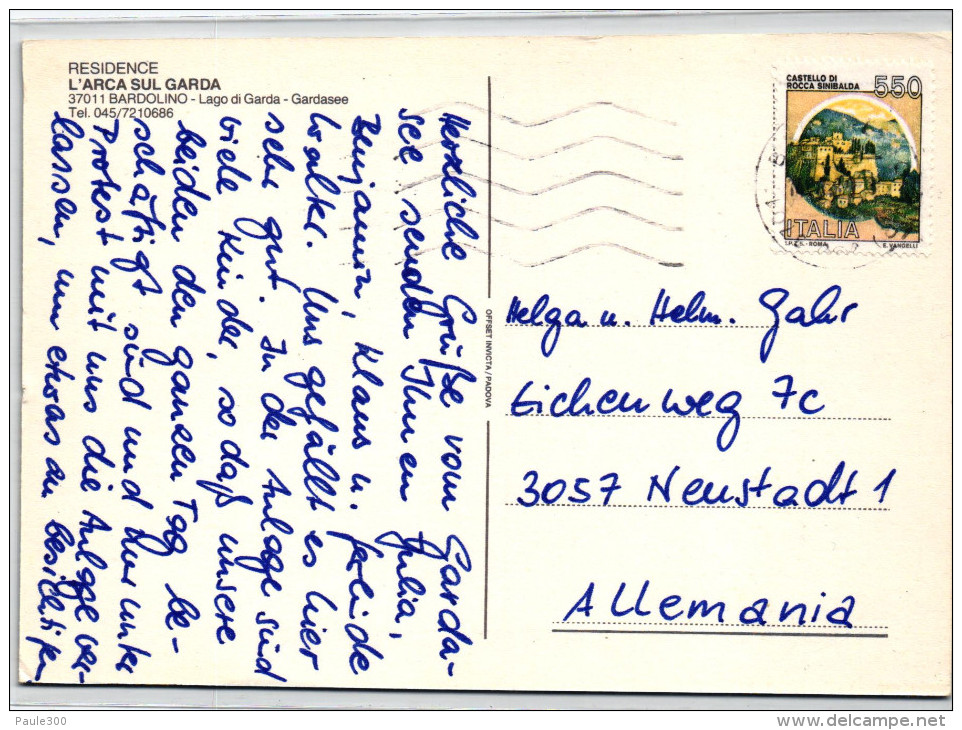 RESIDENCE
L'ARCA SUL GARDA
37011 BARDOLINO - Lago di Garda - Gardasee
Tel. 045/7210686
Herzliche Grüße vom Garda-
see senden Ihnen Julia,
Benjamin, Klaus u. Gerlinde
Walter. Uns gefällt es hier
sehr gut. In der Anlage sind
viele Kinder, so daß unsere
beiden den ganzen Tag be-
schäftigt sind und nur unter
Protest mit uns die Anlage ver-
lassen, um etwas zu besichtigen
OFFSET INVICTA / PADOVA
CASTELLO DI
ROCCA SINIBALDA
550
ITALIA
I.P.Z.S. - ROMA
E. VANGELLI
Helga u. Helm. Gahr
Eichenweg 7c
3057 Neustadt 1
Allemania
Paule300
www.delcampe.net